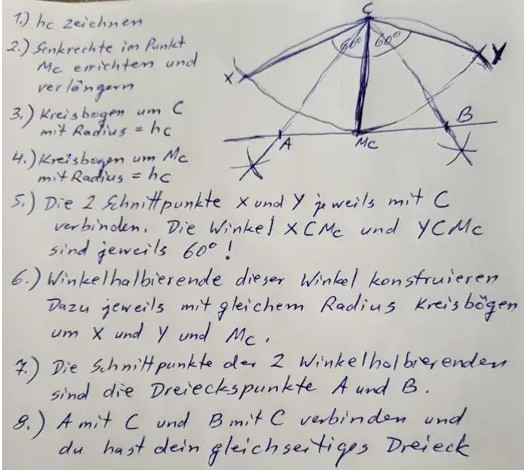 1.) hc zeichnen
2.) Senkrechte im Punkt
Mc errichten und
verlängern
3.) Kreisbogen um C
mit Radius = hc
4.) Kreisbogen um Mc
mit Radius = hc
C
60° 60°
X
Y
A
Mc
B
5.) Die 2 Schnittpunkte X und Y jeweils mit C
verbinden. Die Winkel XCMc und YCMc
sind jeweils 60°!
6.) Winkelhalbierende dieser Winkel konstruieren
Dazu jeweils mit gleichem Radius Kreisbögen
um X und Y und Mc.
7.) Die Schnittpunkte der 2 Winkelhalbierenden
sind die Dreieckspunkte A und B.
8.) A mit C und B mit C verbinden und
du hast dein gleichseitiges Dreieck